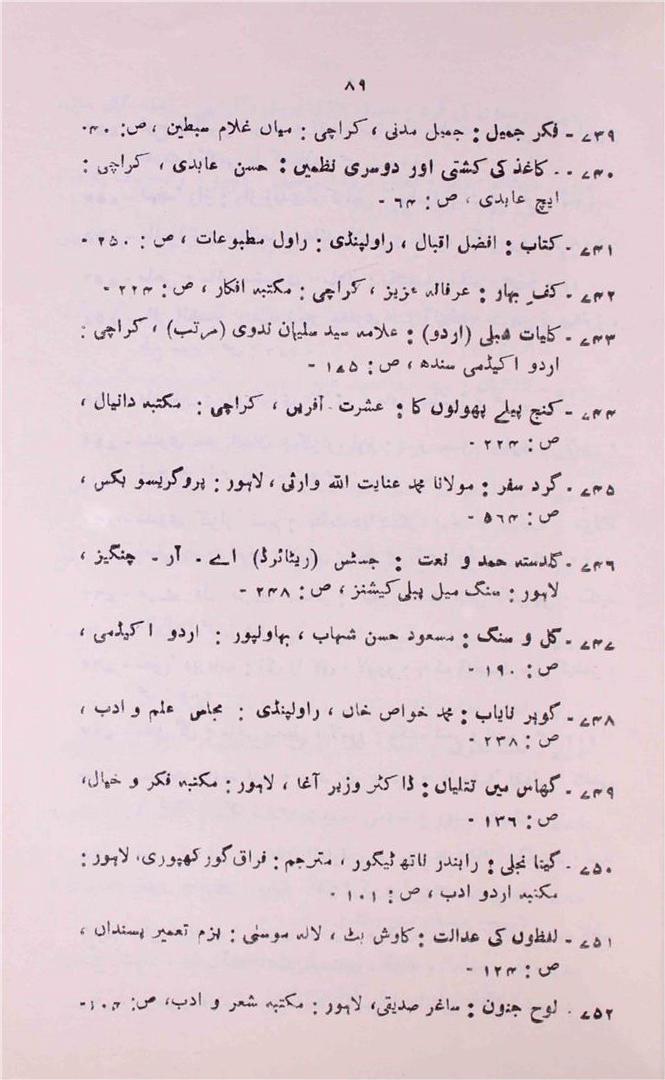 ۸۹
۷۳۹ - فکر جمیل : جمیل مدنی ، کراچی : میاں غلام سبطین ، ص : ۴۰۔
۷۴۰ - کاغذ کی کشتی اور دوسری نظمیں : حسن عابدی ، کراچی :
ایچ عابدی ، ص : ۶۴ -
۷۴۱ - کتاب : افضل اقبال ، راولپنڈی : راول مطبوعات ، ص : ۲۵۰ -
۷۴۲ - کف بہار : عرفانہ عزیز ، کراچی : مکتبہ افکار ، ص : ۲۲۴ -
۷۴۳ - کلیات شبلی (اردو) : علامہ سید سلیمان ندوی (مرتب) ، کراچی :
اردو اکیڈمی سندھ ، ص : ۱۷۵ -
۷۴۴ - کنج پیلے پھولوں کا : عشرت آفریں ، کراچی : مکتبہ دانیال ،
ص : ۲۲۴ -
۷۴۵ - گرد سفر : مولانا محمد عنایت اللہ وارثی ، لاہور : پروگریسو بکس ،
ص : ۵۶۴ -
۷۴۶ - گلدستہ حمد و نعت : جسٹس (ریٹائرڈ) اے - آر - چنگیز ،
لاہور : سنگ میل پبلی کیشنز ، ص : ۲۴۸ -
۷۴۷ - گل و سنگ : مسعود حسن شہاب ، بہاولپور : اردو اکیڈمی ،
ص : ۱۹۰ -
۷۴۸ - گوہر نایاب : محمد خواص خاں ، راولپنڈی : مجلس علم و ادب ،
ص : ۲۳۸ -
۷۴۹ - گھاس میں تتلیاں : ڈاکٹر وزیر آغا ، لاہور : مکتبہ فکر و خیال،
ص : ۱۳۶ -
۷۵۰ - گیتا نجلی : رابندر ناتھ ٹیگور ، مترجم : فراق گورکھپوری، لاہور :
مکتبہ اردو ادب ، ص : ۱۰۱ -
۷۵۱ - لفظوں کی عدالت : کاوش بٹ ، لالہ موسیٰ : بزم تعمیر پسنداں ،
ص : ۱۲۴ -
۷۵۲ - لوح جنون : ساغر صدیقی، لاہور : مکتبہ شعر و ادب، ص : ۱۰۴-